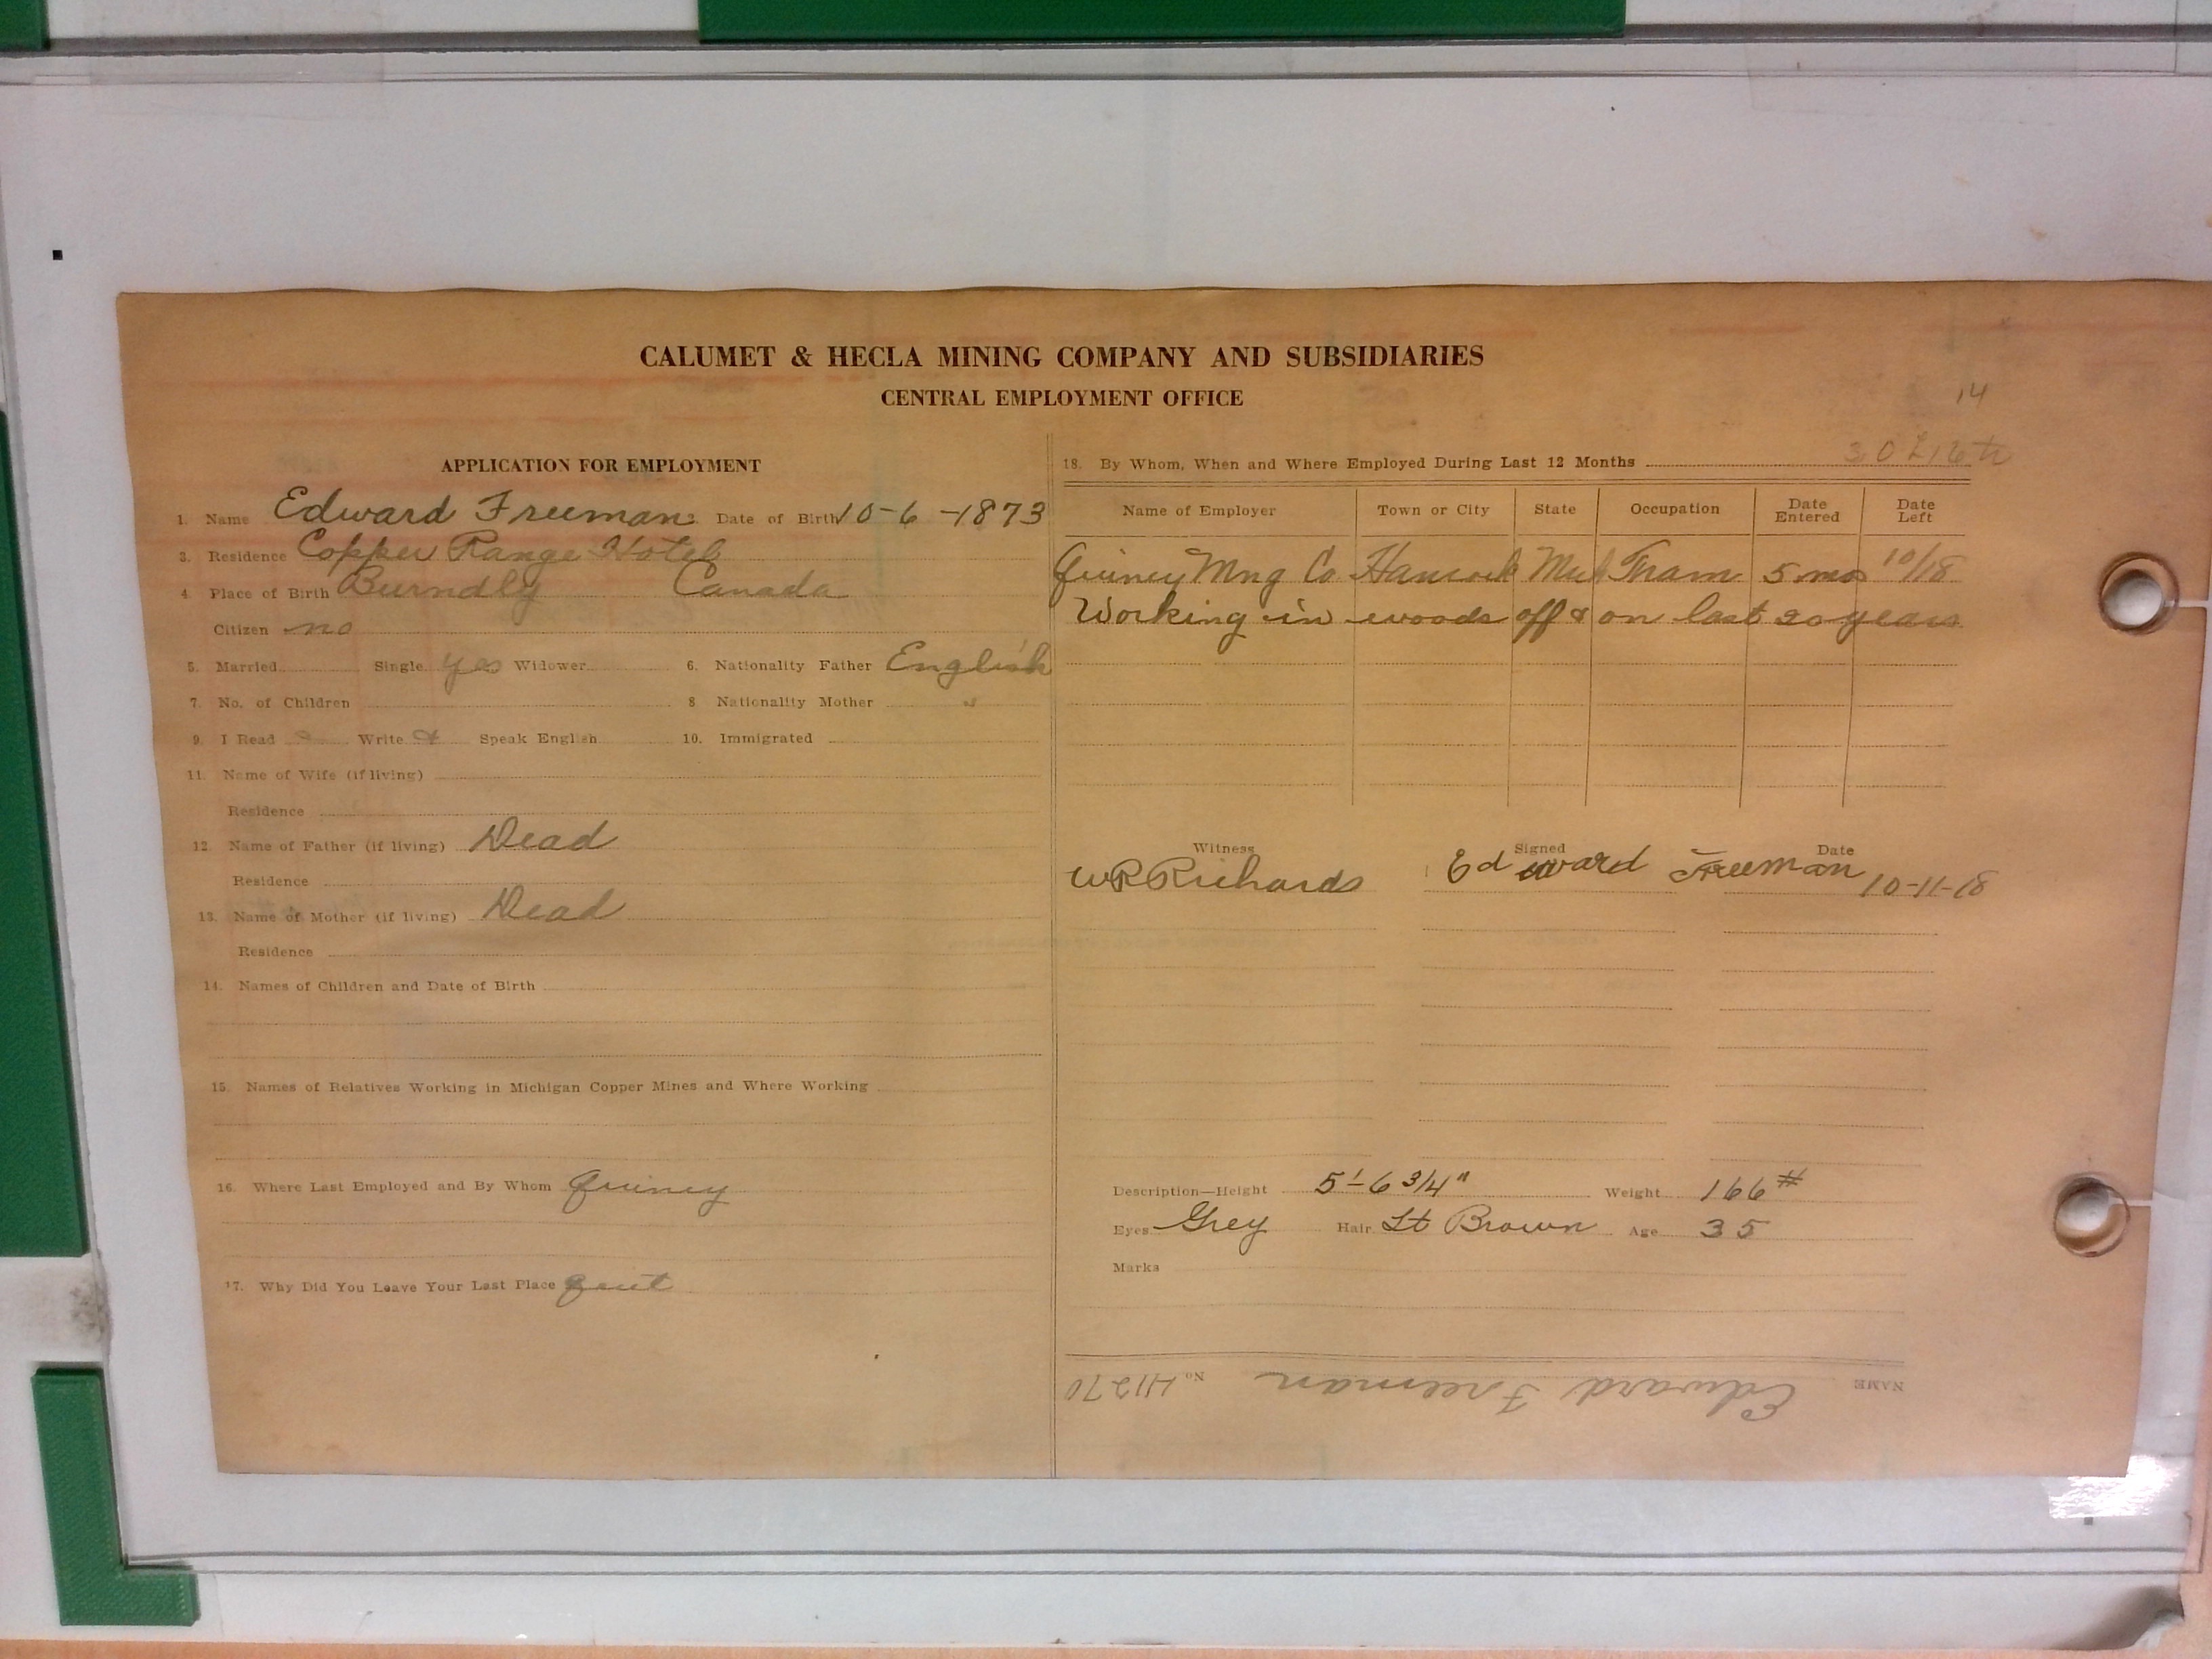 CALUMET & HECLA MINING COMPANY AND SUBSIDIARIES
CENTRAL EMPLOYMENT OFFICE
14
APPLICATION FOR EMPLOYMENT
1. Name Edward Freeman Date of Birth 10-6-1873
3. Residence Copper Range Hotel
4. Place of Birth Burndly Canada
Citizen no
5. Married Single yes Widower 6. Nationality Father English
7. No. of Children 8 Nationality Mother "
9. I Read Write Speak English 10. Immigrated
11. Name of Wife (if living)
Residence
12. Name of Father (if living) Dead
Residence
13. Name of Mother (if living) Dead
Residence
14. Names of Children and Date of Birth
15. Names of Relatives Working in Michigan Copper Mines and Where Working
16. Where Last Employed and By Whom Quincy
17. Why Did You Leave Your Last Place quit
18. By Whom, When and Where Employed During Last 12 Months
Name of Employer Town or City State Occupation Date Entered Date Left
Quincy Mng Co Hancock Mich Tram 5 mos 10/18
Working in woods off & on last 20 years
Witness Signed Date
WR Richards Edward Freeman 10-11-18
Description—Height 5'-6 3/4" Weight 166#
Eyes Grey Hair Lt Brown Age 35
Marks
NAME Edward Freeman No. 411270